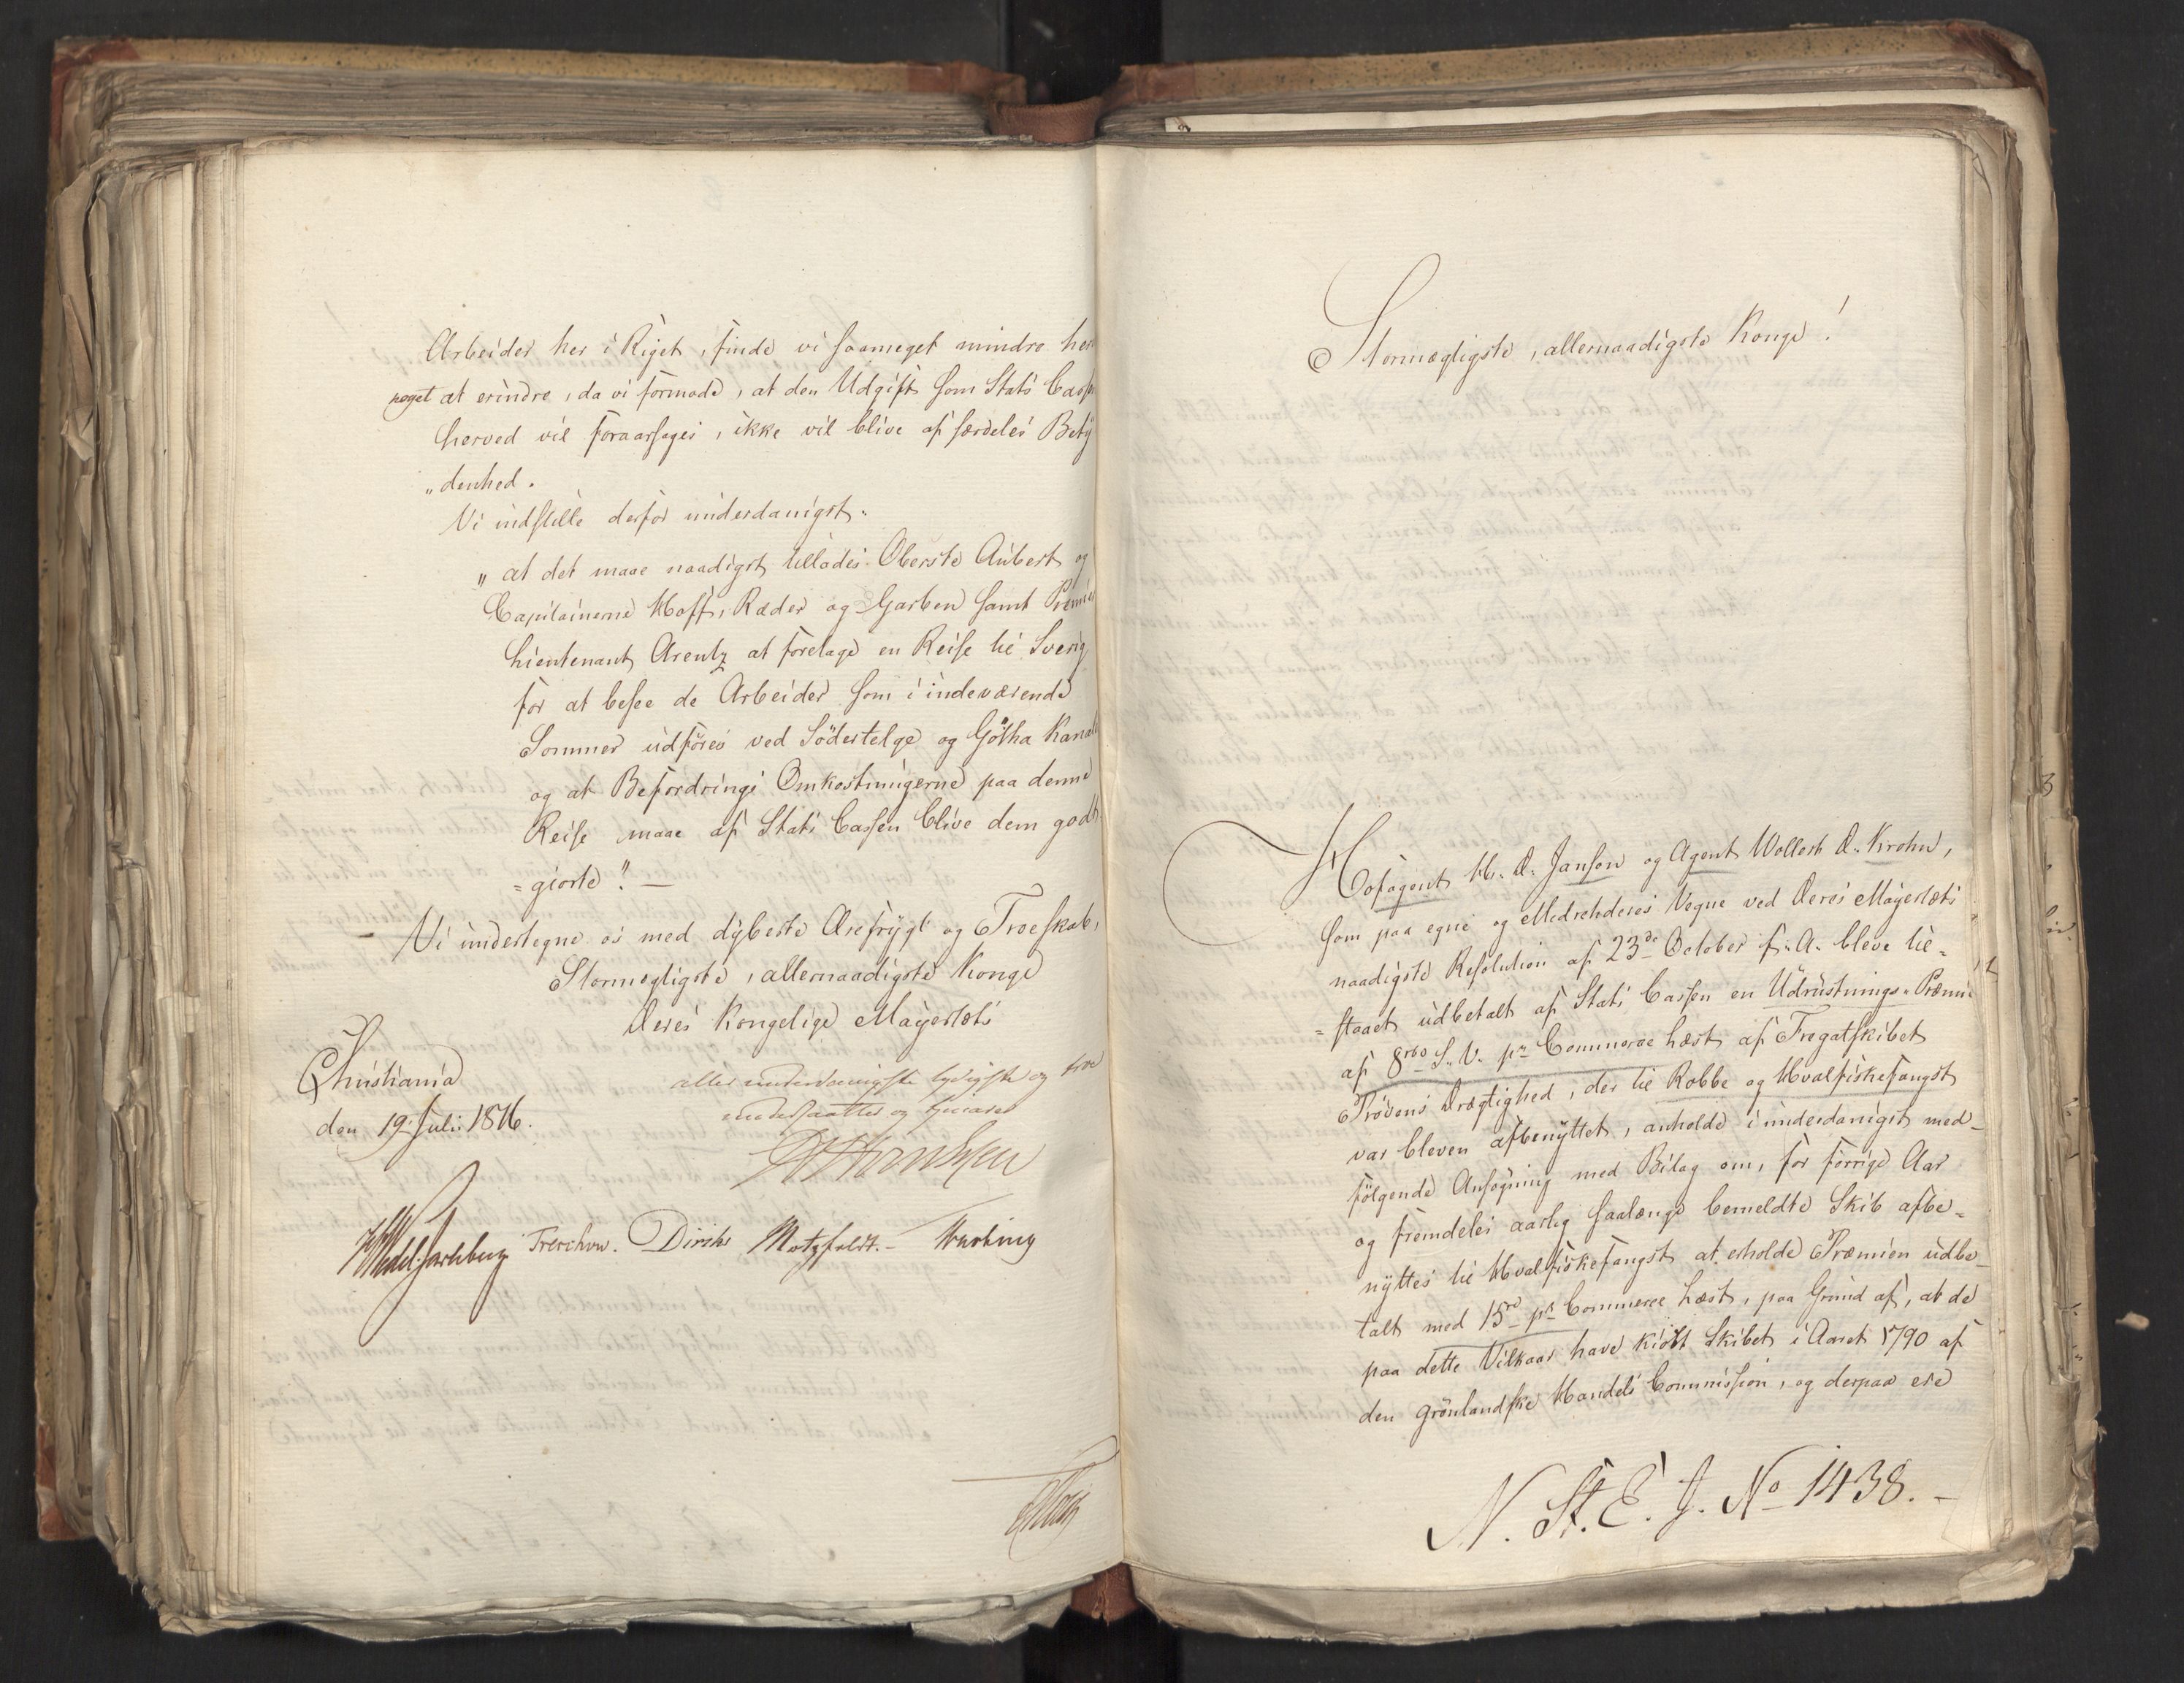 Arbeider her i Riget, finde vi saameget mindre her
noget at erindre, da vi formode, at den Udgift som Stats Cassen
herved vil foraarsages, ikke vil blive af særdeles Bety
„denhed.
Vi indstille derfor underdanigst:
„at det maae naadigst tillades Oberste Aubert og
Capitainerne Hoff, Ræder og Garben samt Premier
Lieutenant Arentz at foretage en Reise til Sverig
for at besee de Arbeider som i indeværende
Sommer udföres ved Södertelge og Götha Kanal
og at Befordrings Omkostningerne paa denne
Reise maae af Stats Cassen blive dem godt
=giorte". —
Vi undertegne os med dybeste Ærefrygt og Troeskab,
Stormægtigste, allernaadigste Konge
Deres Kongelige Mayestæts
Christiania
den 19 Juli 1816.
allerunderdanigste lydigste og troe
undersaatter og tjenere
Wedel-Jarlsberg Treschow. Diriks Motzfeldt.-
Stormægtigste, allernaadigste Konge!
Hofagent H. D. Janson og Agent Wollert D. Krohn,
som paa egne og Medrehderes Vegne ved Deres Mayestæts
naadigste Resolution af 23de October f. A. bleve til=
=staaet udbetalt af Stats Cassen en Udrustnings-Præmie
af 8rbd S. V. pr Commerce Læst af Fregatskibet
Prøvens Drægtighed, der til Robbe og Hvalfiskefangst
var bleven afbenyttet, anholde i underdanigst med=
følgende Ansøgning med Bilag om, for forrige Aar
og fremdeles aarlig saalænge bemeldte Skib afbe=
nyttes til Hvalfiskefangst at erholde Præmien udbe=
talt med 15rd pr Commerce Læst, paa Grund af, at de
paa dette Vilkaar have kiöbt Skibet i Aaret 1790 af
den grönlandske Handels Commission, og derpaa ere
N. St. E. J. No 1438. -